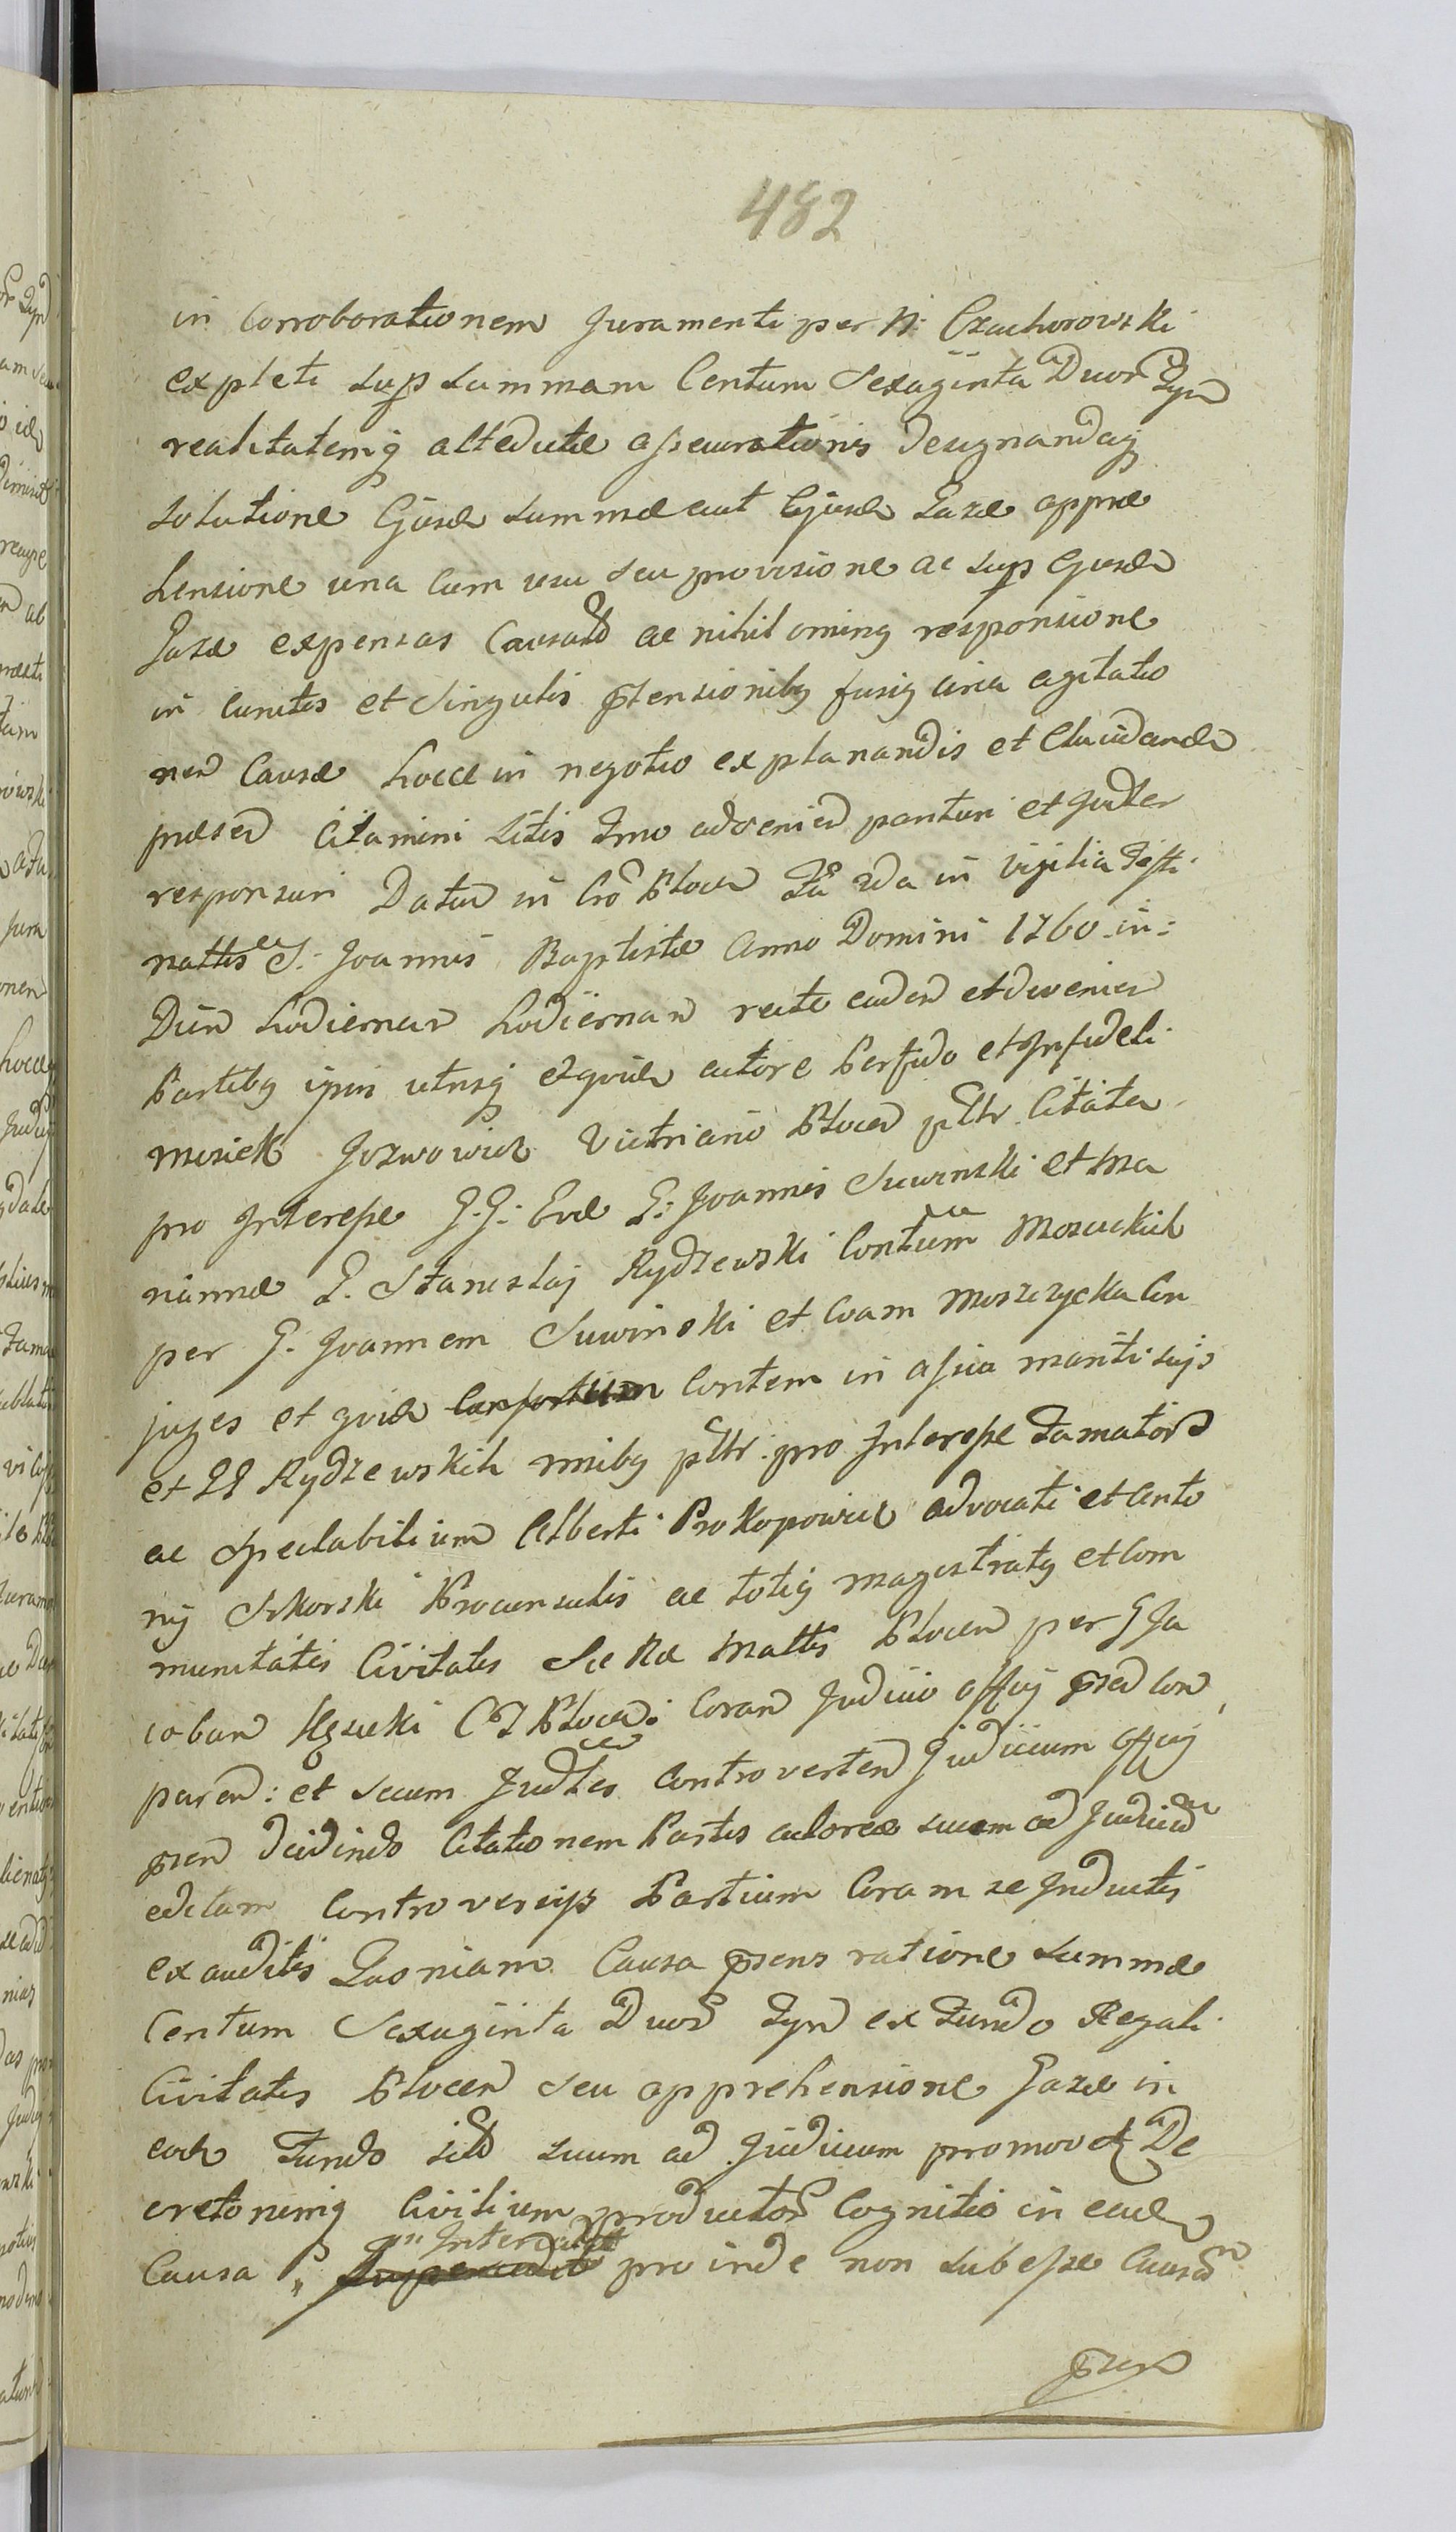 482
in Corroborationem Juramenti per N: Czachorowski
expleti sup summam Centum Sexaginta Duor Tyn
realitatemq altedutae assecurationis Designandaq
solutione Ejusd summae aut Ejusd Taxae appre
hensione una cum usu seu provisione ac sup Ejusd
Taxae expensas Causatd ac nihilominq responsione
in cunctis et Singulis ptensionibq fusiq circa agitatio
nen Causae hocce in negotio explanandis et Elucidand
praesen Citamini Litis Trno advenien parituri et Judler
responsuri Datum in Cro Plocen Fa 2da in vigilia Festi
nattis S: Joannis Baptistae Anno Domini 1760 in:
Diem hodiernar hodiernan recte caden et devenien
Partibq ipsis utrisq et quid actore Perfido et Infideli
Mosiek Jozwowicz Victriano Plocen pttr Citata
pro Interesse G.G: Evae G: Joannis Suwinski et Ma
riannae G. Stanislaj Rydzewski Contum Moscickich
per G. Joannem Suwinski et Evam Moszczycka Con
juges et quid Consortium Contem in assia mariti sujs
et GG Rydzewskich mnibq pttr. pro Interesse Famator
ac Spectabilium Alberti Prokopowicz advocati et Anto
nij Sikorski Proconsulis ac totiq magistratq et Com
munitatis Civitatis Sae Rae Mattis Plocen per G Ja
coban Kęsicki C T Plocen: Coran Judicio Officij prsen Con
paren: et secum Judles Controverten Judicium Officij
prsen Decidindo Citationem Partis actoreae suum ad Judicium
editam Controversijs Partium Coram se Inductis
exauditis Quoniam Causa prsens ratione summae
Centum Sexaginta Duor Tyn ex Fundo Regali
Civitatis Plocen seu apprehensione Taxae in
eod Fundo sitd suum ad Judicium promovet De
cretoruniq Civilium productor Cognitio in ead
Causa " Intercedit proinde non subesse Causam
prsen